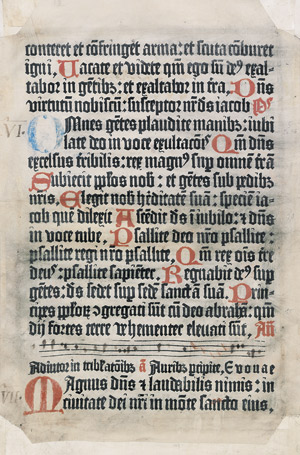 conteret et cōfringet arma: et scuta cōburet
igni, Uacate et videte qm̄ ego sū de⁹ exal-
tabor in gētib⁹: et exaltabor in t̄ra. Dn̄s
virtutum nobiscū: susceptor nr̄ de⁹ iacob Ps̄
VI. Omnes gētes plaudite manib⁹: iubi
late deo in voce exultacōis Qm̄ dn̄s
excelsus t̄ribilis: rex magn⁹ sup omnē t̄rā
Subiecit pp̄los nob̄: et gētes sub pedib⁹
nr̄is. Elegit nob̄ h̄editatē suā: speciē ia-
cob quē dilexit Ascēdit de⁹ ī iubilo: et dn̄s
in voce tube. Psallite deo nr̄o psallite:
psallite regi nr̄o psallite, Qm̄ rex oīs t̄re
deus: psallite sapiēter. Regnabit de⁹ sup
gētes: de⁹ sedet sup sedē sanctā suā. Prin-
cipes pp̄lor̄ ꝯgregati sūt cū deo abrahā: qm̄
dij fortes terre vehementer eleuati sūt, An̄
Adiutor in tribl̓atōib⁹ a Aurib⁹ ꝑcipite, Evouae
VII. Magnus dn̄s et laudabilis nimis: in
ciuitate dei nr̄i in mōte sancto eius,